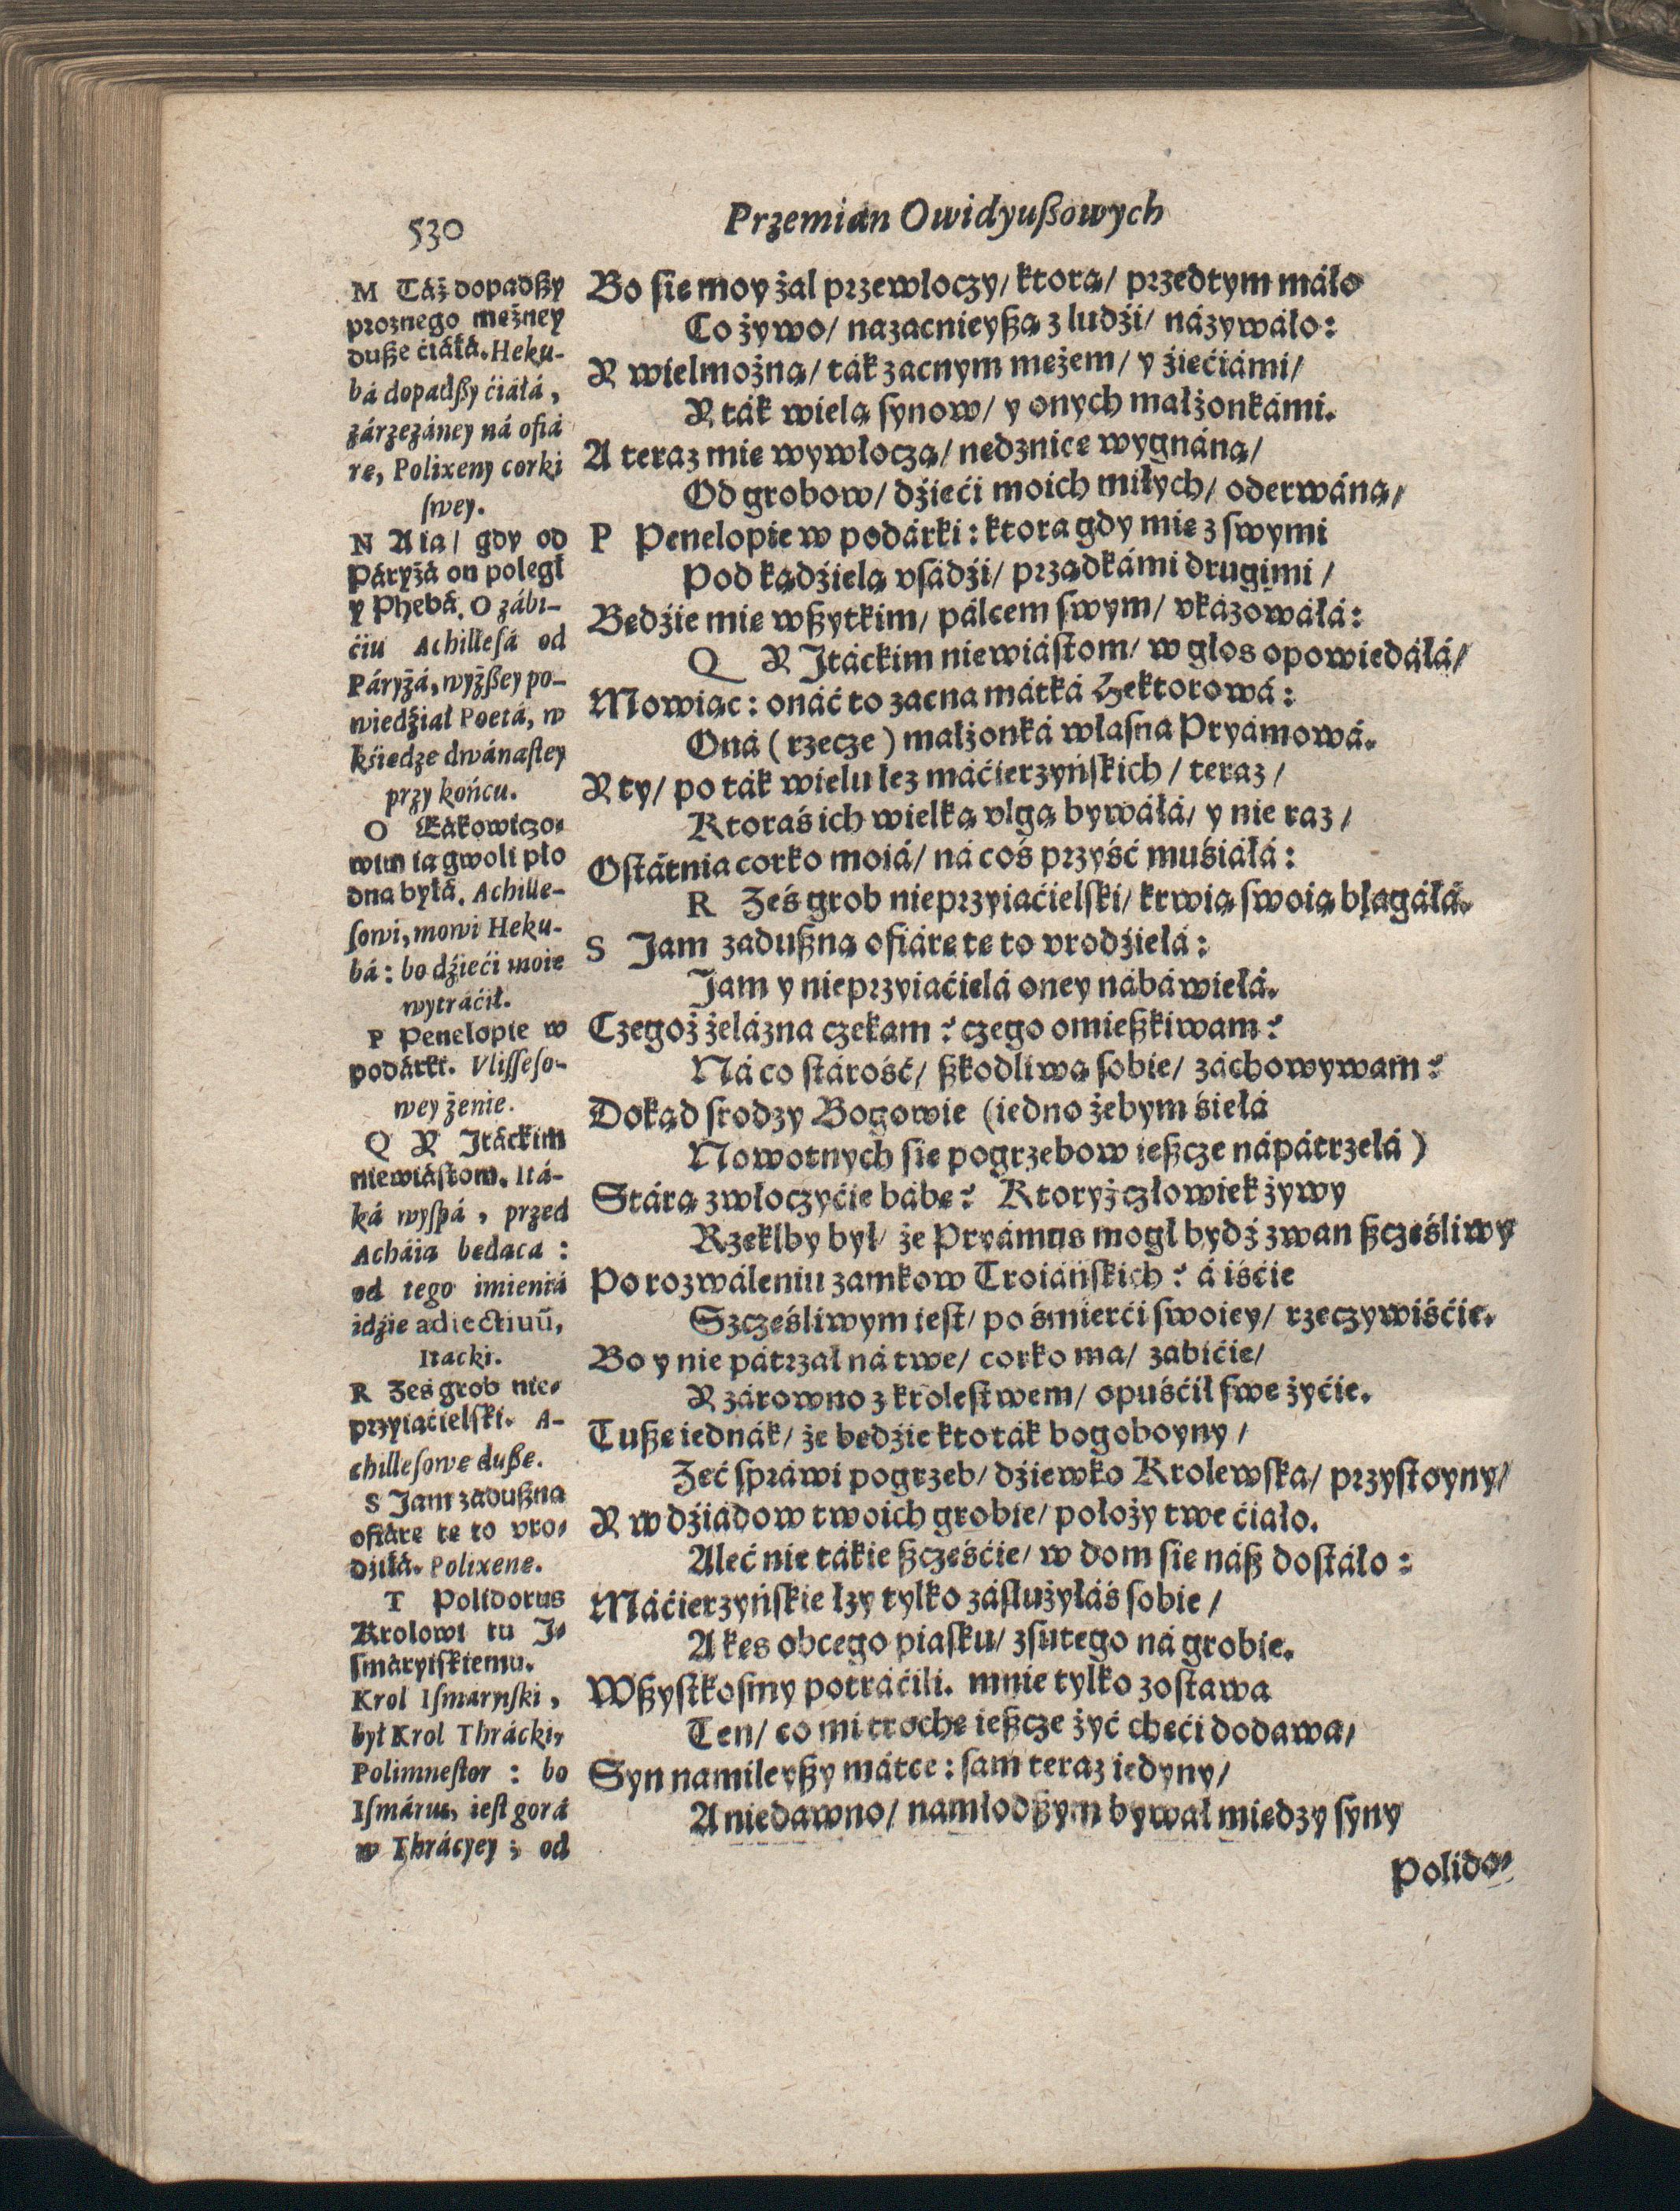 530
Przemian Owidyußowych
M Táż dopadßy
proznego mężney
duße ćiáłá. Heku-
bá dopadßy ćiáłá,
zárzezáney ná ofiá
re, Polixeny corki
swey.
N A ia/ gdy od
Páryżá on poległ
y Phebá. O zábi-
ćiu Achillesá od
Páryżá, wyżßey po-
wiedźiał Poetá, w
kśiędze dwánastey
przy końcu.
O Eákowiczo-
wim ia gwoli pło
dna byłá. Achille-
sowi, mowi Heku-
bá: bo dźieći moie
wytráćił.
P Penelopie w
podárki. Vlisseso-
wey żenie.
Q Y Itáckim
niewiástom. Itá-
ká wyspá, przed
Acháią będąca:
od tego imieniá
idźie adiectiuū,
Itacki.
R Żeś grob nie-
przyiaćielski. A-
chillesowe duße.
S Jam zadußną
ofiárę tę to vro-
dźiłá. Polixenę.
T Polidorus
Krolowi tu J-
smáryiskiemu.
Krol Ismaryński,
był Krol Thrácki,
Polimnestor: bo
Ismárus, iest gorá
w Thrácyey; od
Bo się moy żal przewłoczy/ ktorą/ przedtym máło
Co żywo/ nazacnieyßą z ludźi/ názywáło:
Y wielmożną/ ták zacnym mężem/ y źięćiámi/
Y ták wielą synow/ y onych małżonkámi.
A teraz mię wywłoczą/ nędznicę wygnáną/
Od grobow/ dźieći moich miłych/ oderwáną/
P Penelopie w podárki: ktora gdy mię z swymi
Pod kądźielą vsádźi/ prządkámi drugimi/
Będźie mię wßytkim/ pálcem swym/ vkázowáłá:
Q Y Jtáckim niewiástom/ w głos opowiedáłá/
Mowiąc: onáć to zacna mátká Hektorowá:
Oná (rzecze) małżonká własna Pryámowá.
Y ty/ po ták wielu łez máćierzyńskich/ teraz/
Ktoraś ich wielką vlgą bywáłá/ y nie raz/
Ostátnia corko moiá/ ná coś przyść muśiáłá:
R Żeś grob nieprzyiaćielski/ krwią swoią błagáłá.
S Jam zadußną ofiárę tę to vrodźiełá:
Jam y nieprzyiaćielá oney nábáwiełá.
Czegoż żelázna czekam? czego omießkiwam?
Ná co stárość/ ßkodliwą sobie/ záchowywam?
Dokąd srodzy Bogowie (iedno żebym śiełá
Nowotnych się pogrzebow ießcze nápátrzełá)
Stárą zwłoczyćie bábę? Ktoryż człowiek żywy
Rzekłby był/ że Pryámus mogł bydź zwan ßczęśliwy
Po rozwáleniu zamkow Troiáńskich? á iśćie
Szczęśliwym iest/ po śmierći swoiey/ rzeczywiśćie.
Bo y nie pátrzał ná twe/ corko ma/ zabićie/
Y zárowno z krolestwem/ opuśćił swe żyćie.
Tußę iednák/ że będźie kto ták bogoboyny/
Żeć spráwi pogrzeb/ dźiewko Krolewska/ przystoyny/
Y w dźiádow twoich grobie/ położy twe ćiało.
Aleć nie tákie ßczęśćie/ w dom się náß dostáło:
Máćierzyńskie łzy tylko zásłużyłáś sobie/
A kęs obcego piasku/ zsutego ná grobie.
Wßystkosmy potráćili. mnie tylko zostawa
Ten/ co mi trochę ießcze żyć chęći dodawa/
Syn namileyßy mátce: sam teraz iedyny/
A niedawno/ namłodßym bywał między syny
Polido-